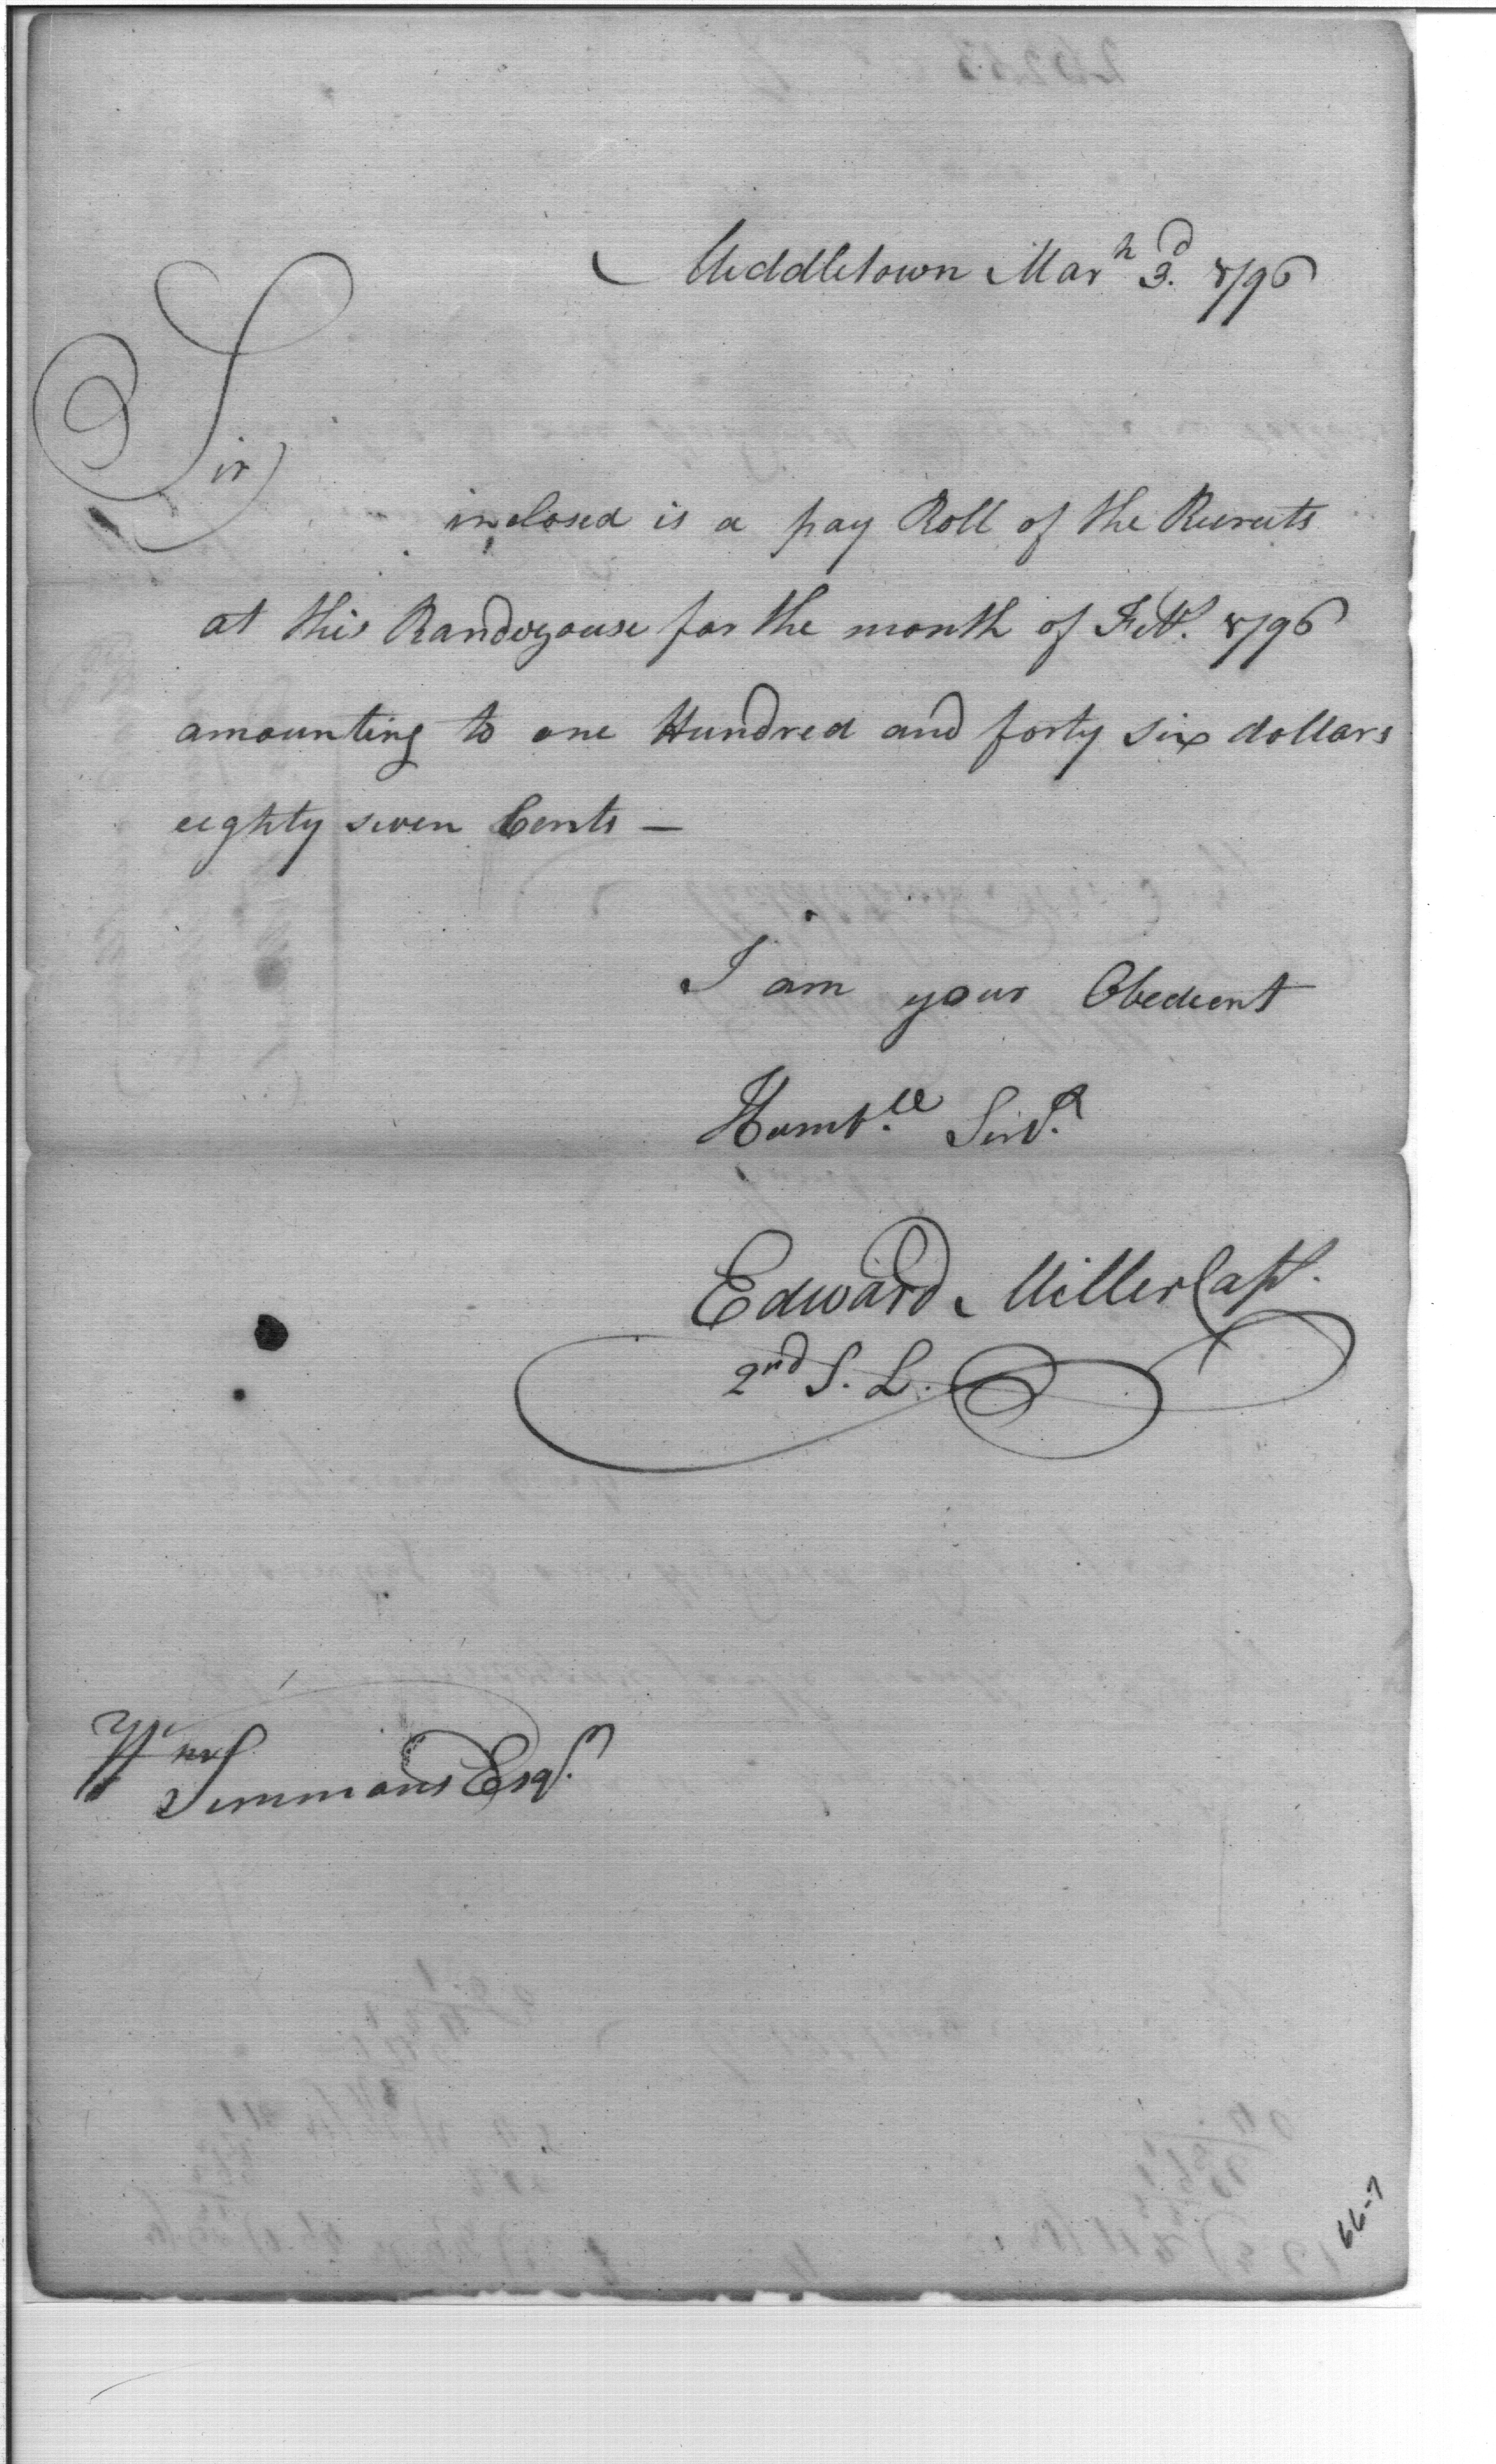 Middletown Marh 3d. 1796
Sir
inclosed is a pay Roll of the Recruits
at this Randezouse for the month of Feb. 1796
amounting to one Hundred and forty six dollars
eighty seven Cents —
I am your Obedient
Humb.le Serv.t
Edward Miller Capt.
2nd S. L.
Wm
Simmons Esqr.
66-7